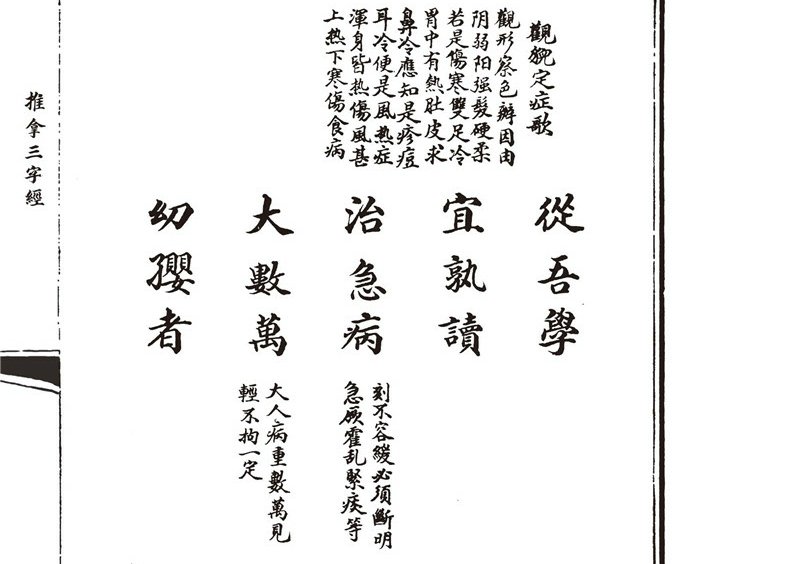 觀貌定症歌
觀形察色辨因由
阴弱阳强髮硬柔
若是傷寒雙足冷
胃中有熱肚皮求
鼻冷應知是疹痘
耳冷便是風热症
渾身皆热傷風甚
上热下寒傷食病
從吾學
宜孰讀
治急病
刻不容緩必須斷明
急厥霍乱緊痰等
大數萬
大人病重數萬見
輕不拘一定
幼孾者
推拿三字經